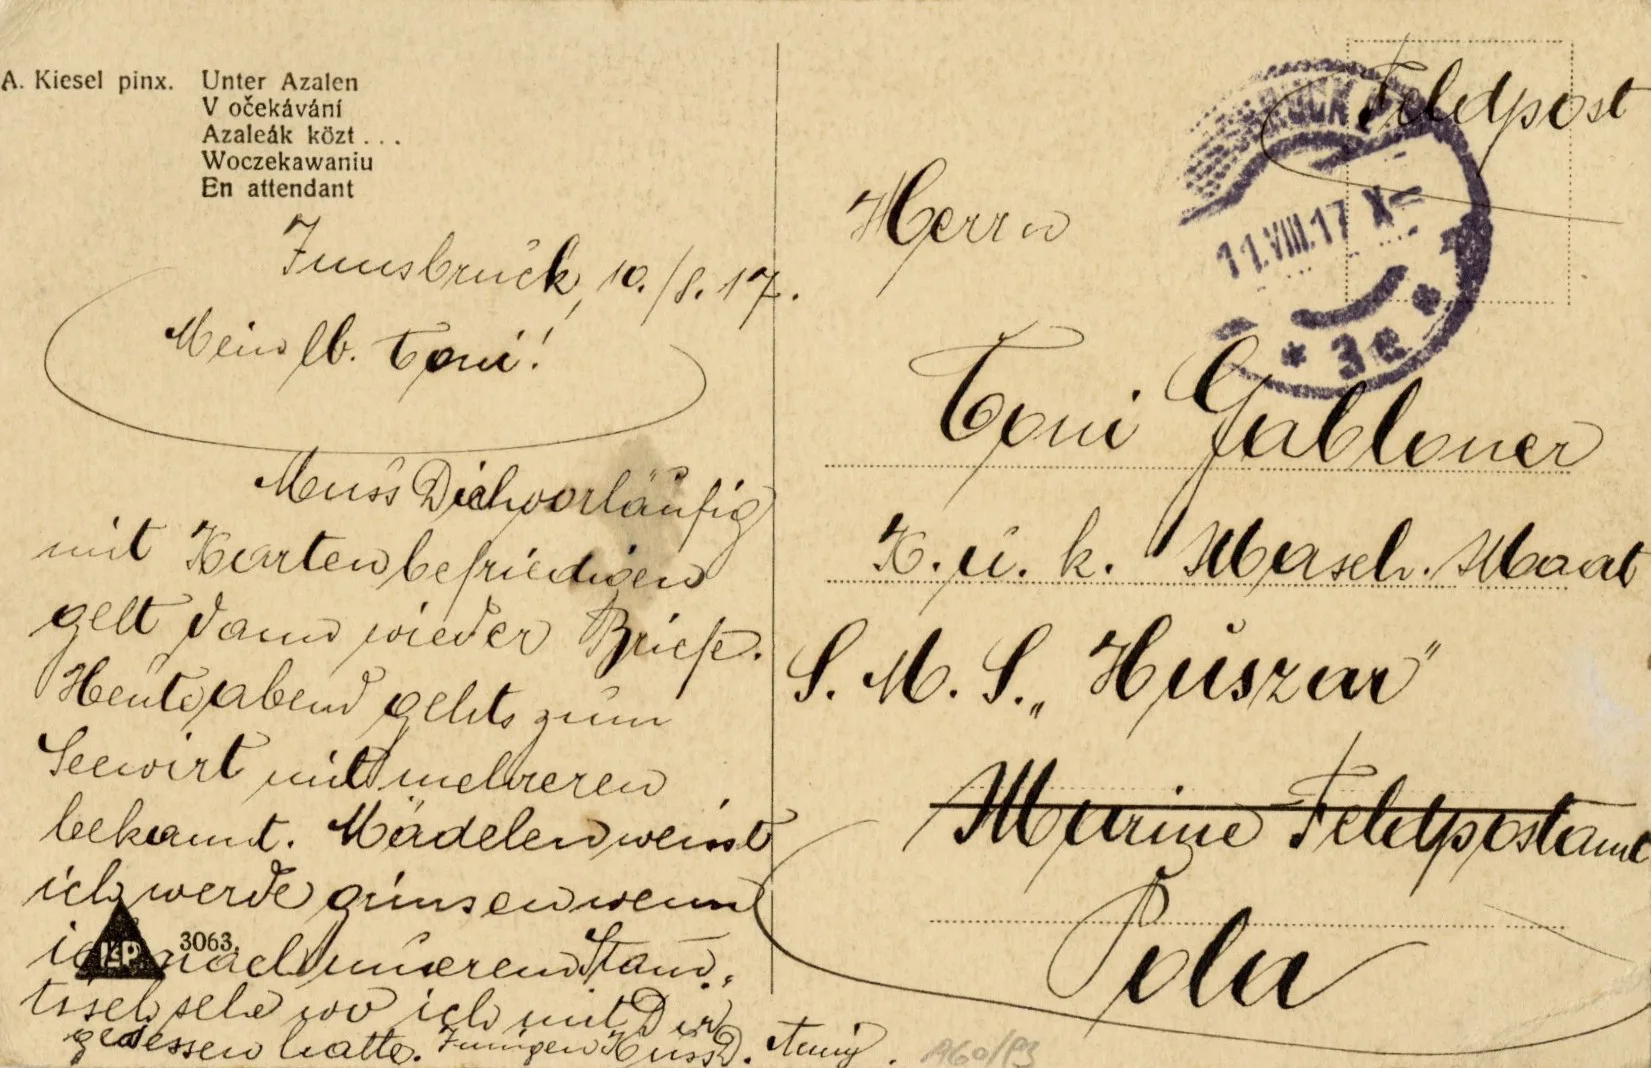 A. Kiesel pinx. Unter Azalen
V očekávání
Azaleák közt . . .
Woczekawaniu
En attendant
Innsbruck, 10./8. 17.
Mein lb. Toni!
Muss Dich vorläufig
mit Karten befriedigen
gelt dann wieder Briefe.
Heute abend gehts zum
Seewirt mit mehreren
bekannt. Mädelen weisst
ich werde grinsen wenn
ich nach unserem Stam,
tisch sehe wo ich mit Dir
gesessen hatte. Innigen Kuss D.
3063.
KP
Feldpost
11.VIII.17 X
* 3c *
Herrn
Toni Gabloner
K. u. k. Masch. Maat
S. M. S. „Huszar"
Marine Feldpostamt
Pola
A60/93